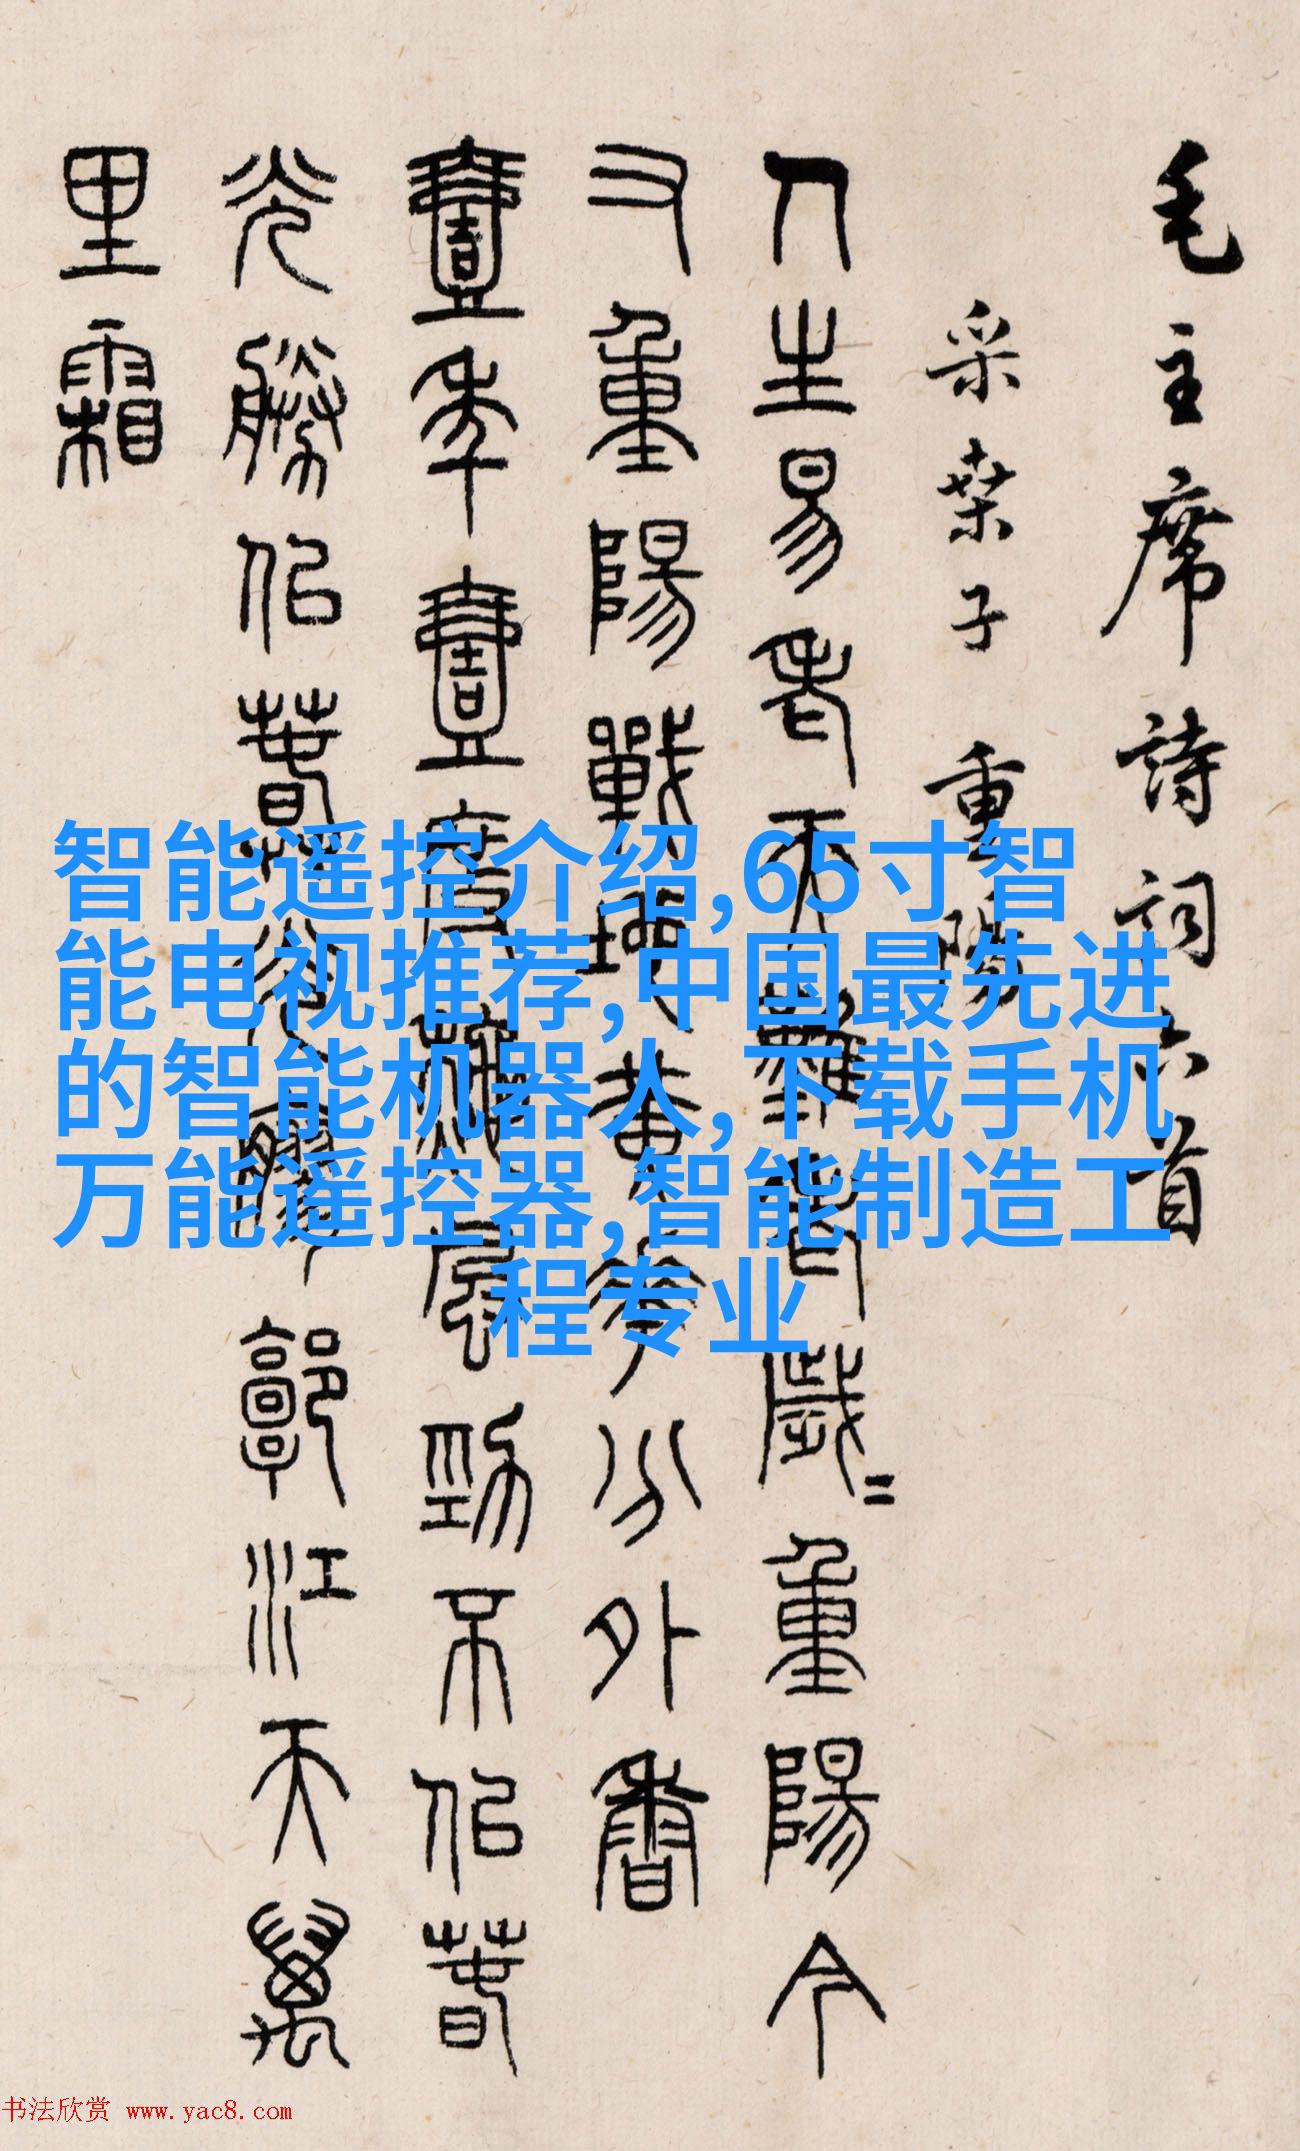 毛主席詩詞六首
采桒子 重陽
人生易老天難老歲〻重陽今
又重陽戰地黃華分外香
壹年壹度秋風勁不佀春
光勝佀春光寥廓江天萬
里霜
智能遥控介绍,65寸智
能电视推荐,中国最先进
的智能机器人,下载手机
万能遥控器,智能制造工
程专业
书法欣赏 www.yac8.com